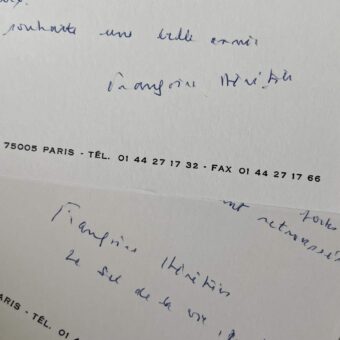 souhaite une belle année
Françoise Héritier
75005 PARIS - TÉL. 01 44 27 17 32 - FAX 01 44 27 17 66
toutes
ont retrouvé
Françoise Héritier
Le Sel de la vie,
PARIS - TÉL. 01